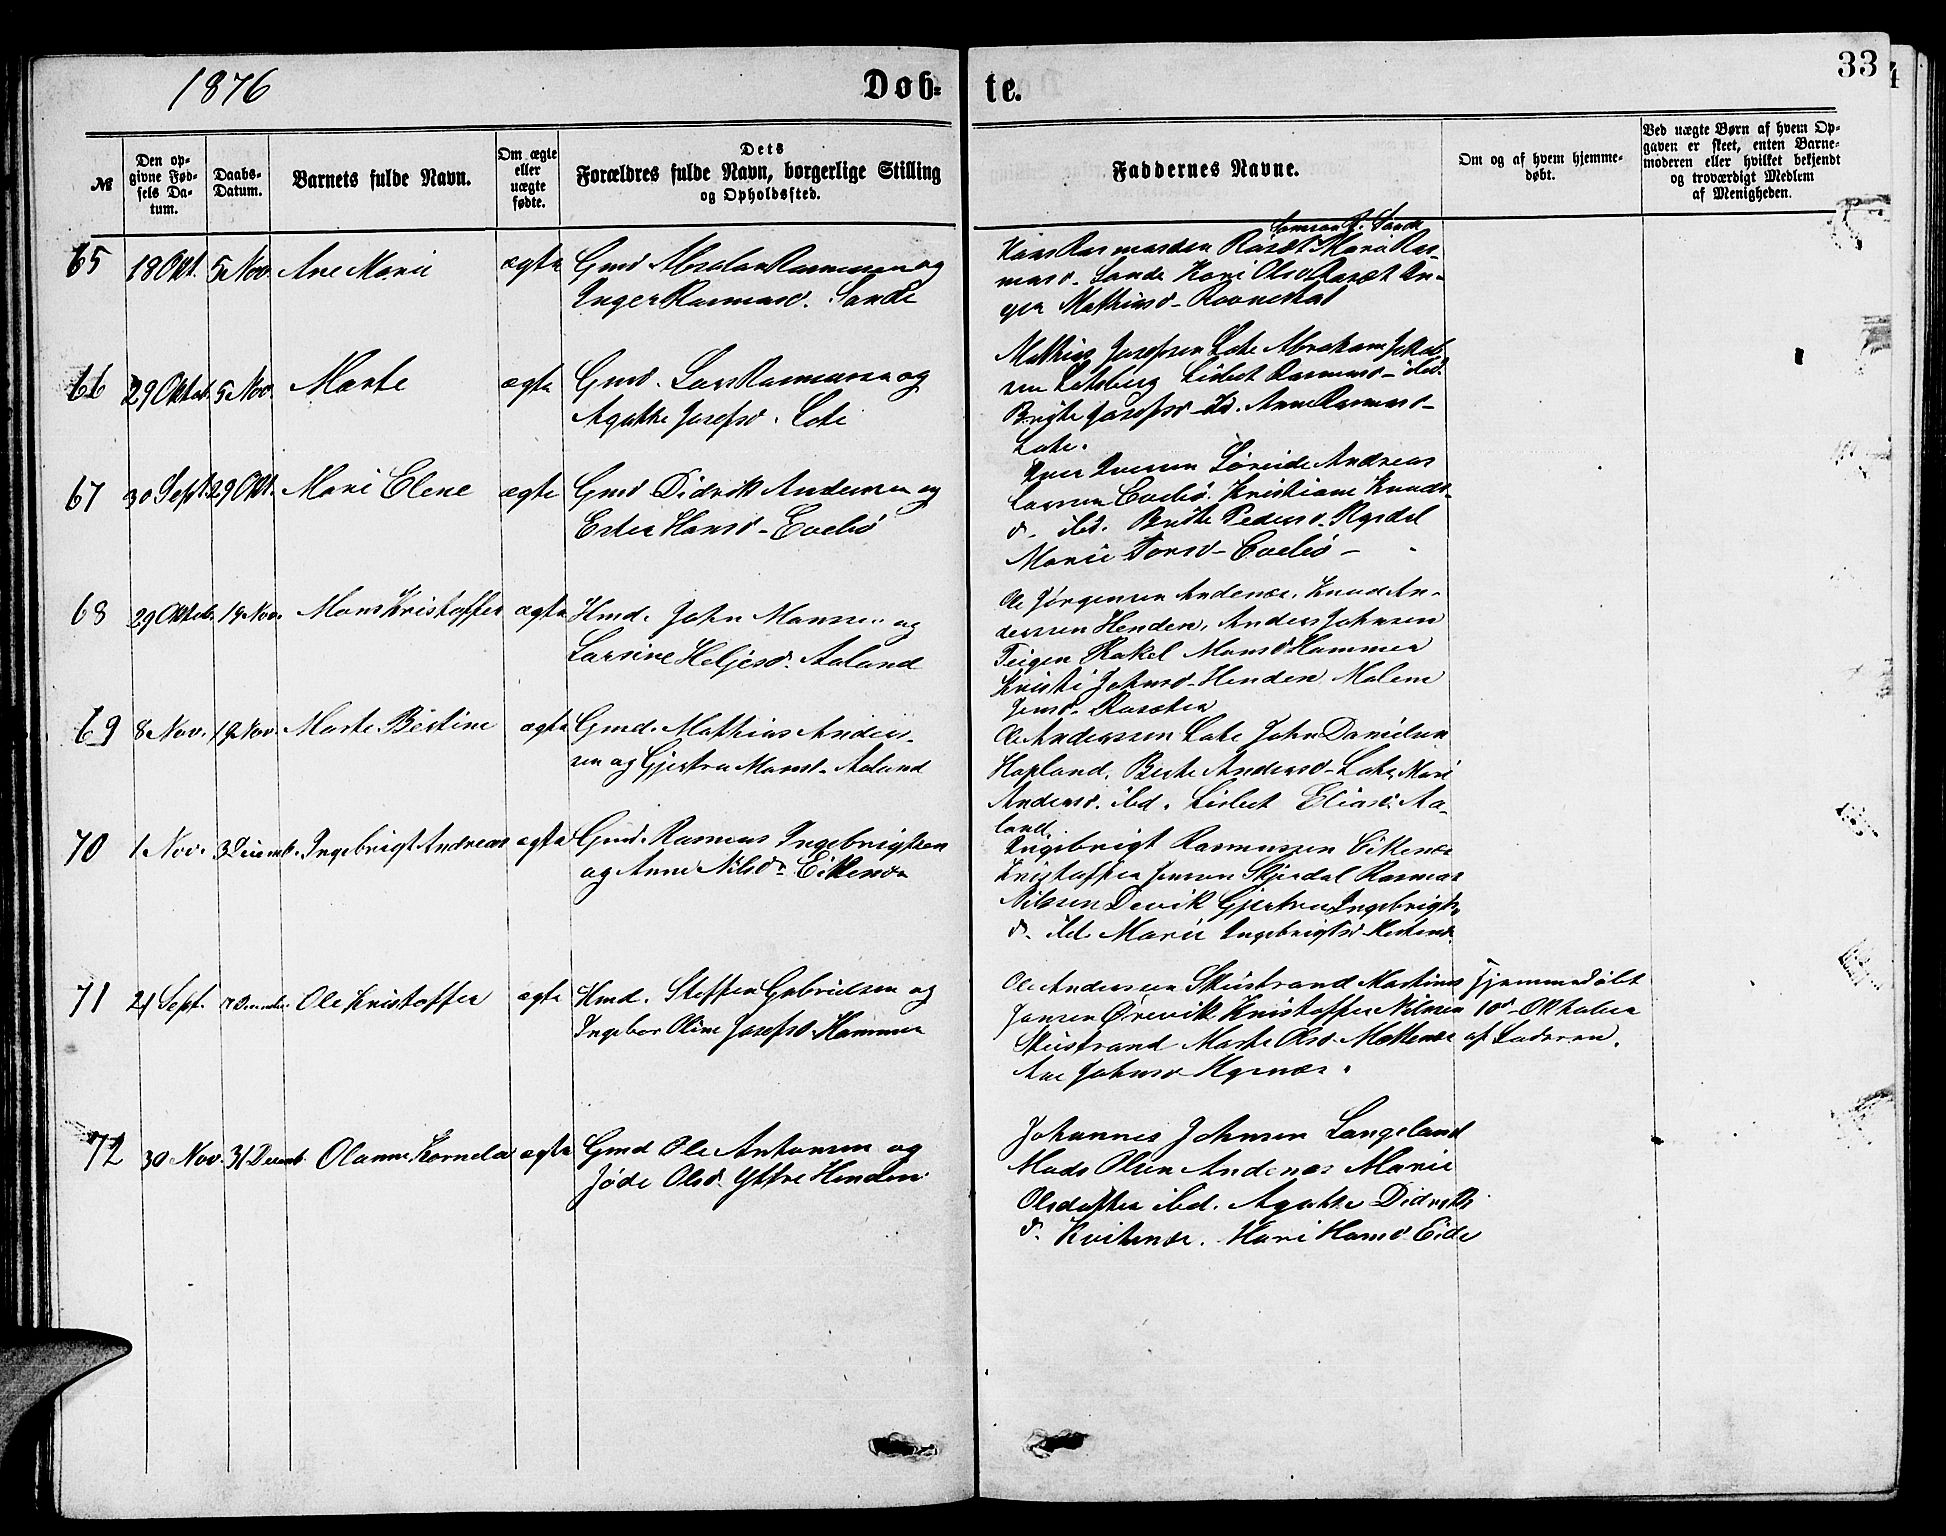 1876
Døb=
te.
33
№
Den op-
givne Fød-
sels Da-
tum.
Daabs-
Datum.
Barnets fulde Navn.
Om ægte
eller
uægte
fødte.
Dets
Forældres fulde Navn, borgerlige Stilling
og Opholdssted.
Faddernes Navne.
Om og af hvem hjemme-
døbt.
Ved uægte Børn af hvem Op-
gaven er skeet, enten Barne-
moderen eller hvilket bekjendt
og troværdigt Medlem
af Menigheden.
65 18 Okt. 5 Nov. Ane Marie ægte Gmd Absalon Rasmussen og
Inger Rasmusd. Sande
R. Sande
Hans Rasmussen Mari Ras-
musd. Sande Kari Olsd In-
ger Mathiasd-
66 29 Oktob. 5 Nov. Marte ægte Gmd. Lars Rasmussen og
Agathe Josefsd. Lote
Mathias Josefsen Lote Abraham Jakob-
sen Lotsberg Lisbet Rasmusd- ibid.
Brite Josefsd- ibd. Anne Rasmusd-
Lote.
67 30 Sept. 29 Okt. Mari Elene ægte Gmd Didrik Andersen og
Ester Hansd- Evebø
Iver Iversen Løreide Andreas
Larsen Evebø. Kristiane Knuds-
d. ibd. Brite Pedersd- Rysdal
Marie Tonsd- Evebø-
68 29 Oktob. 19 Nov. Mons Kristoffer ægte Hmd. John Monssen og
Larsine Heljesd. Aaland
Ole Jørgensen Andenæs. Knud An-
derssen Henden, Anders Johnsen
Teigen Rakel Monsd Hammer
Kristi Johnsd- Henden Malene
Jensd.
69 8 Nov. 19 Nov. Marte Bertine ægte Gmd. Mathias Anders-
sen og Gjertru Monsd- Aaland
Ole Anderssen Lote John Danielsen
Hopland, Berte Andersd- Lote, Mari
Andersd. ibd. Lisbet Eliasd. Aa-
land.
70 1 Nov. 3 Decemb. Ingebrigt Andreas ægte Gmd. Rasmus Ingebrigtsen
og Anne Nilsd- Eikenæs
Ingebrigt Rasmussen Eikenæs
Kristoffer Jensen Skjerdal Rasmus
Nilssen Devik Gjertru Ingebrigts
d. ibd. Marie Ingebrigtsd
71 21 Sept. 7 December Ole Kristoffer ægte Hmd. Steffen Gabrielsen og
Ingebor Oline Josefsd. Hammer
Ole Anderssen Skistrand Martinus
Jansen Ørevik Kristoffer Nilssen
Skistrand Marte Olsd.
Ane Johnsd Hyenæs.
Hjemmedøbt
10de Oktober
af Faderen.
72 30 Nov. 31 Decemb. Olanne Kornela ægte Gmd Ole Antonsen og
Jøde Olsd. Yttre Henden
Johannes Johnsen Langeland
Mads Olsen Andenæs Marie
Olsdatter ibd. Agathe Didriks
d. Kvitenæs. Mari Hansd Eide